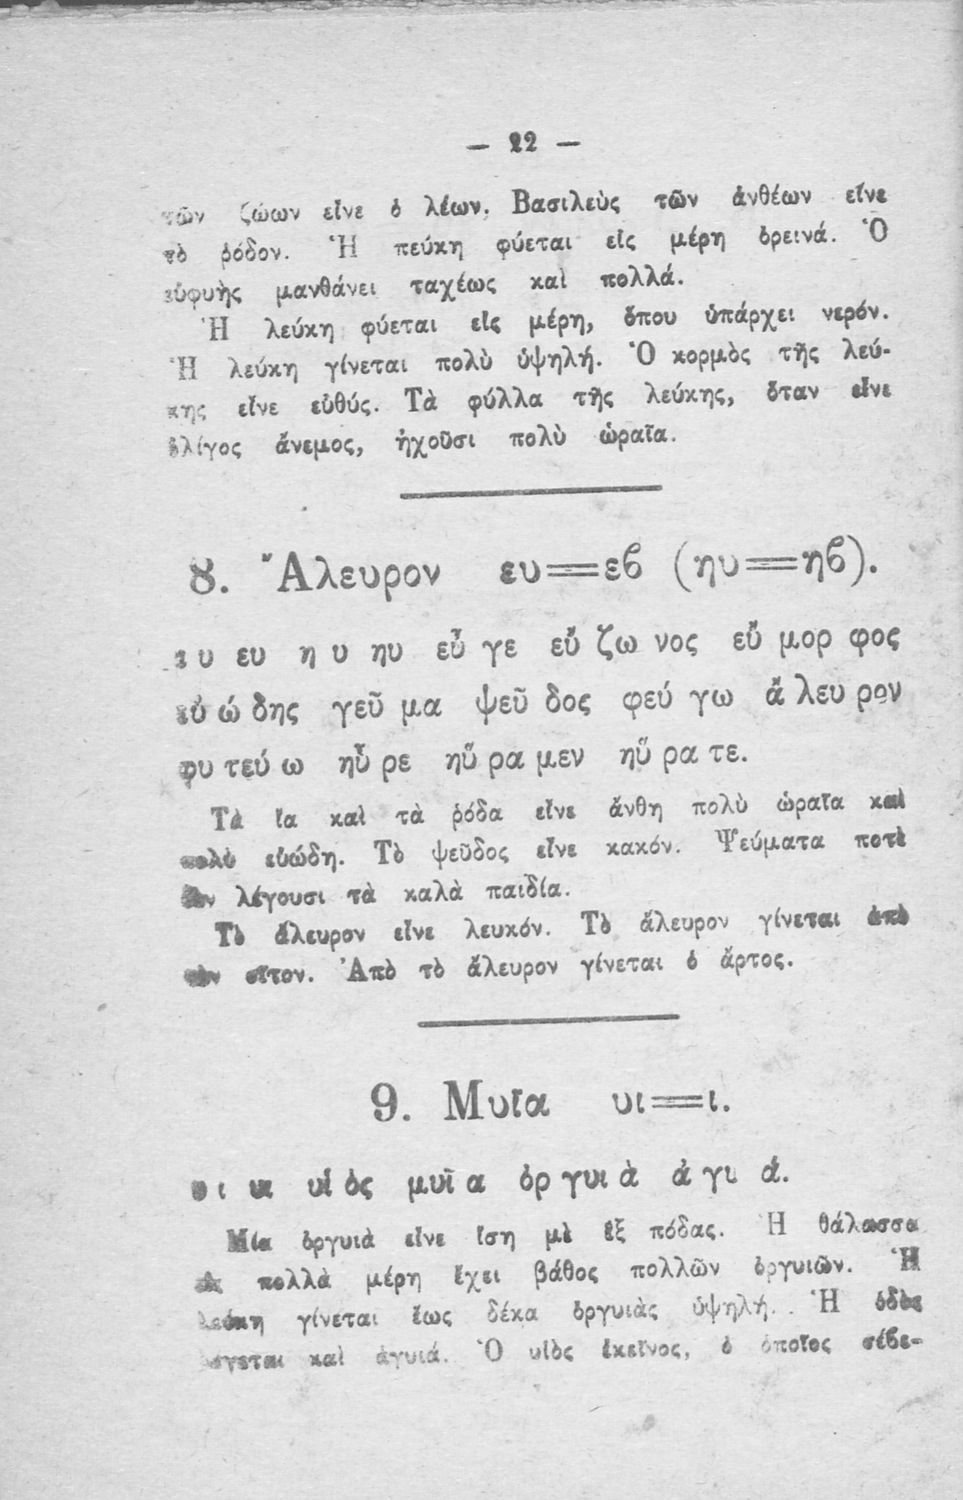 — 22 —
τῶν ζώων εἶνε ὁ λέων. Βασιλεὺς τῶν ἀνθέων εἶνε
τὸ ῥόδον. Ἡ πεύκη φύεται εἰς μέρη ὀρεινά. Ὁ
εὐφυὴς μανθάνει ταχέως καὶ πολλά.
Ἡ λεύκη φύεται εἰς μέρη, ὅπου ὑπάρχει νερόν.
Ἡ λεύκη γίνεται πολὺ ὑψηλή. Ὁ κορμὸς τῆς λεύ-
κης εἶνε εὐθύς. Τὰ φύλλα τῆς λεύκης, ὅταν εἶνε
ὀλίγος ἄνεμος, ἠχοῦσι πολὺ ὡραῖα.
8. Ἄλευρον ευ=εϐ (ηυ=ηϐ).
ε υ ευ η υ ηυ εὖ γε εὔ ζω νος εὔ μορ φος
εὐ ώ δης γεῦ μα ψεῦ δος φεύ γω ἄ λευ ρον
φυ τεύ ω ηὗ ρε ηὕ ρα μεν ηὕ ρα τε.
Τὰ ἴα καὶ τὰ ῥόδα εἶνε ἄνθη πολὺ ὡραῖα καὶ
πολὺ εὐώδη. Τὸ ψεῦδος εἶνε κακόν. Ψεύματα ποτὲ
δὲν λέγουσι τὰ καλὰ παιδία.
Τὸ ἄλευρον εἶνε λευκόν. Τὸ ἄλευρον γίνεται ἀπὸ
τὸν σῖτον. Ἀπὸ τὸ ἄλευρον γίνεται ὁ ἄρτος.
9. Μυῖα υι=ι.
υ ι υι υἱ ὸς μυῖ α ὀρ γυι ὰ ἀ γυι ά.
Μία ὀργυιὰ εἶνε ἴση μὲ ἓξ πόδας. Ἡ θάλασσα
εἰς πολλὰ μέρη ἔχει βάθος πολλῶν ὀργυιῶν. Ἡ
λεύκη γίνεται ἕως δέκα ὀργυιὰς ὑψηλή. Ἡ ὁδὸς
λέγεται καὶ ἀγυιά. Ὁ υἱὸς ἐκεῖνος, ὁ ὁποῖος σέϐε-